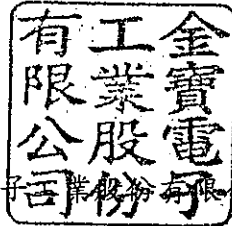 金寶電子
工業股份
有限公司
子工業股份有限